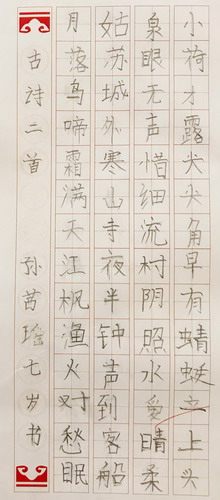 小荷才露尖尖角早有蜻蜓立上头
泉眼无声惜细流村阴照水爱晴柔
姑苏城外寒山寺夜半钟声到客船
月落鸟啼霜满天江枫渔火对愁眠
古诗二首 孙茜瑶七岁书